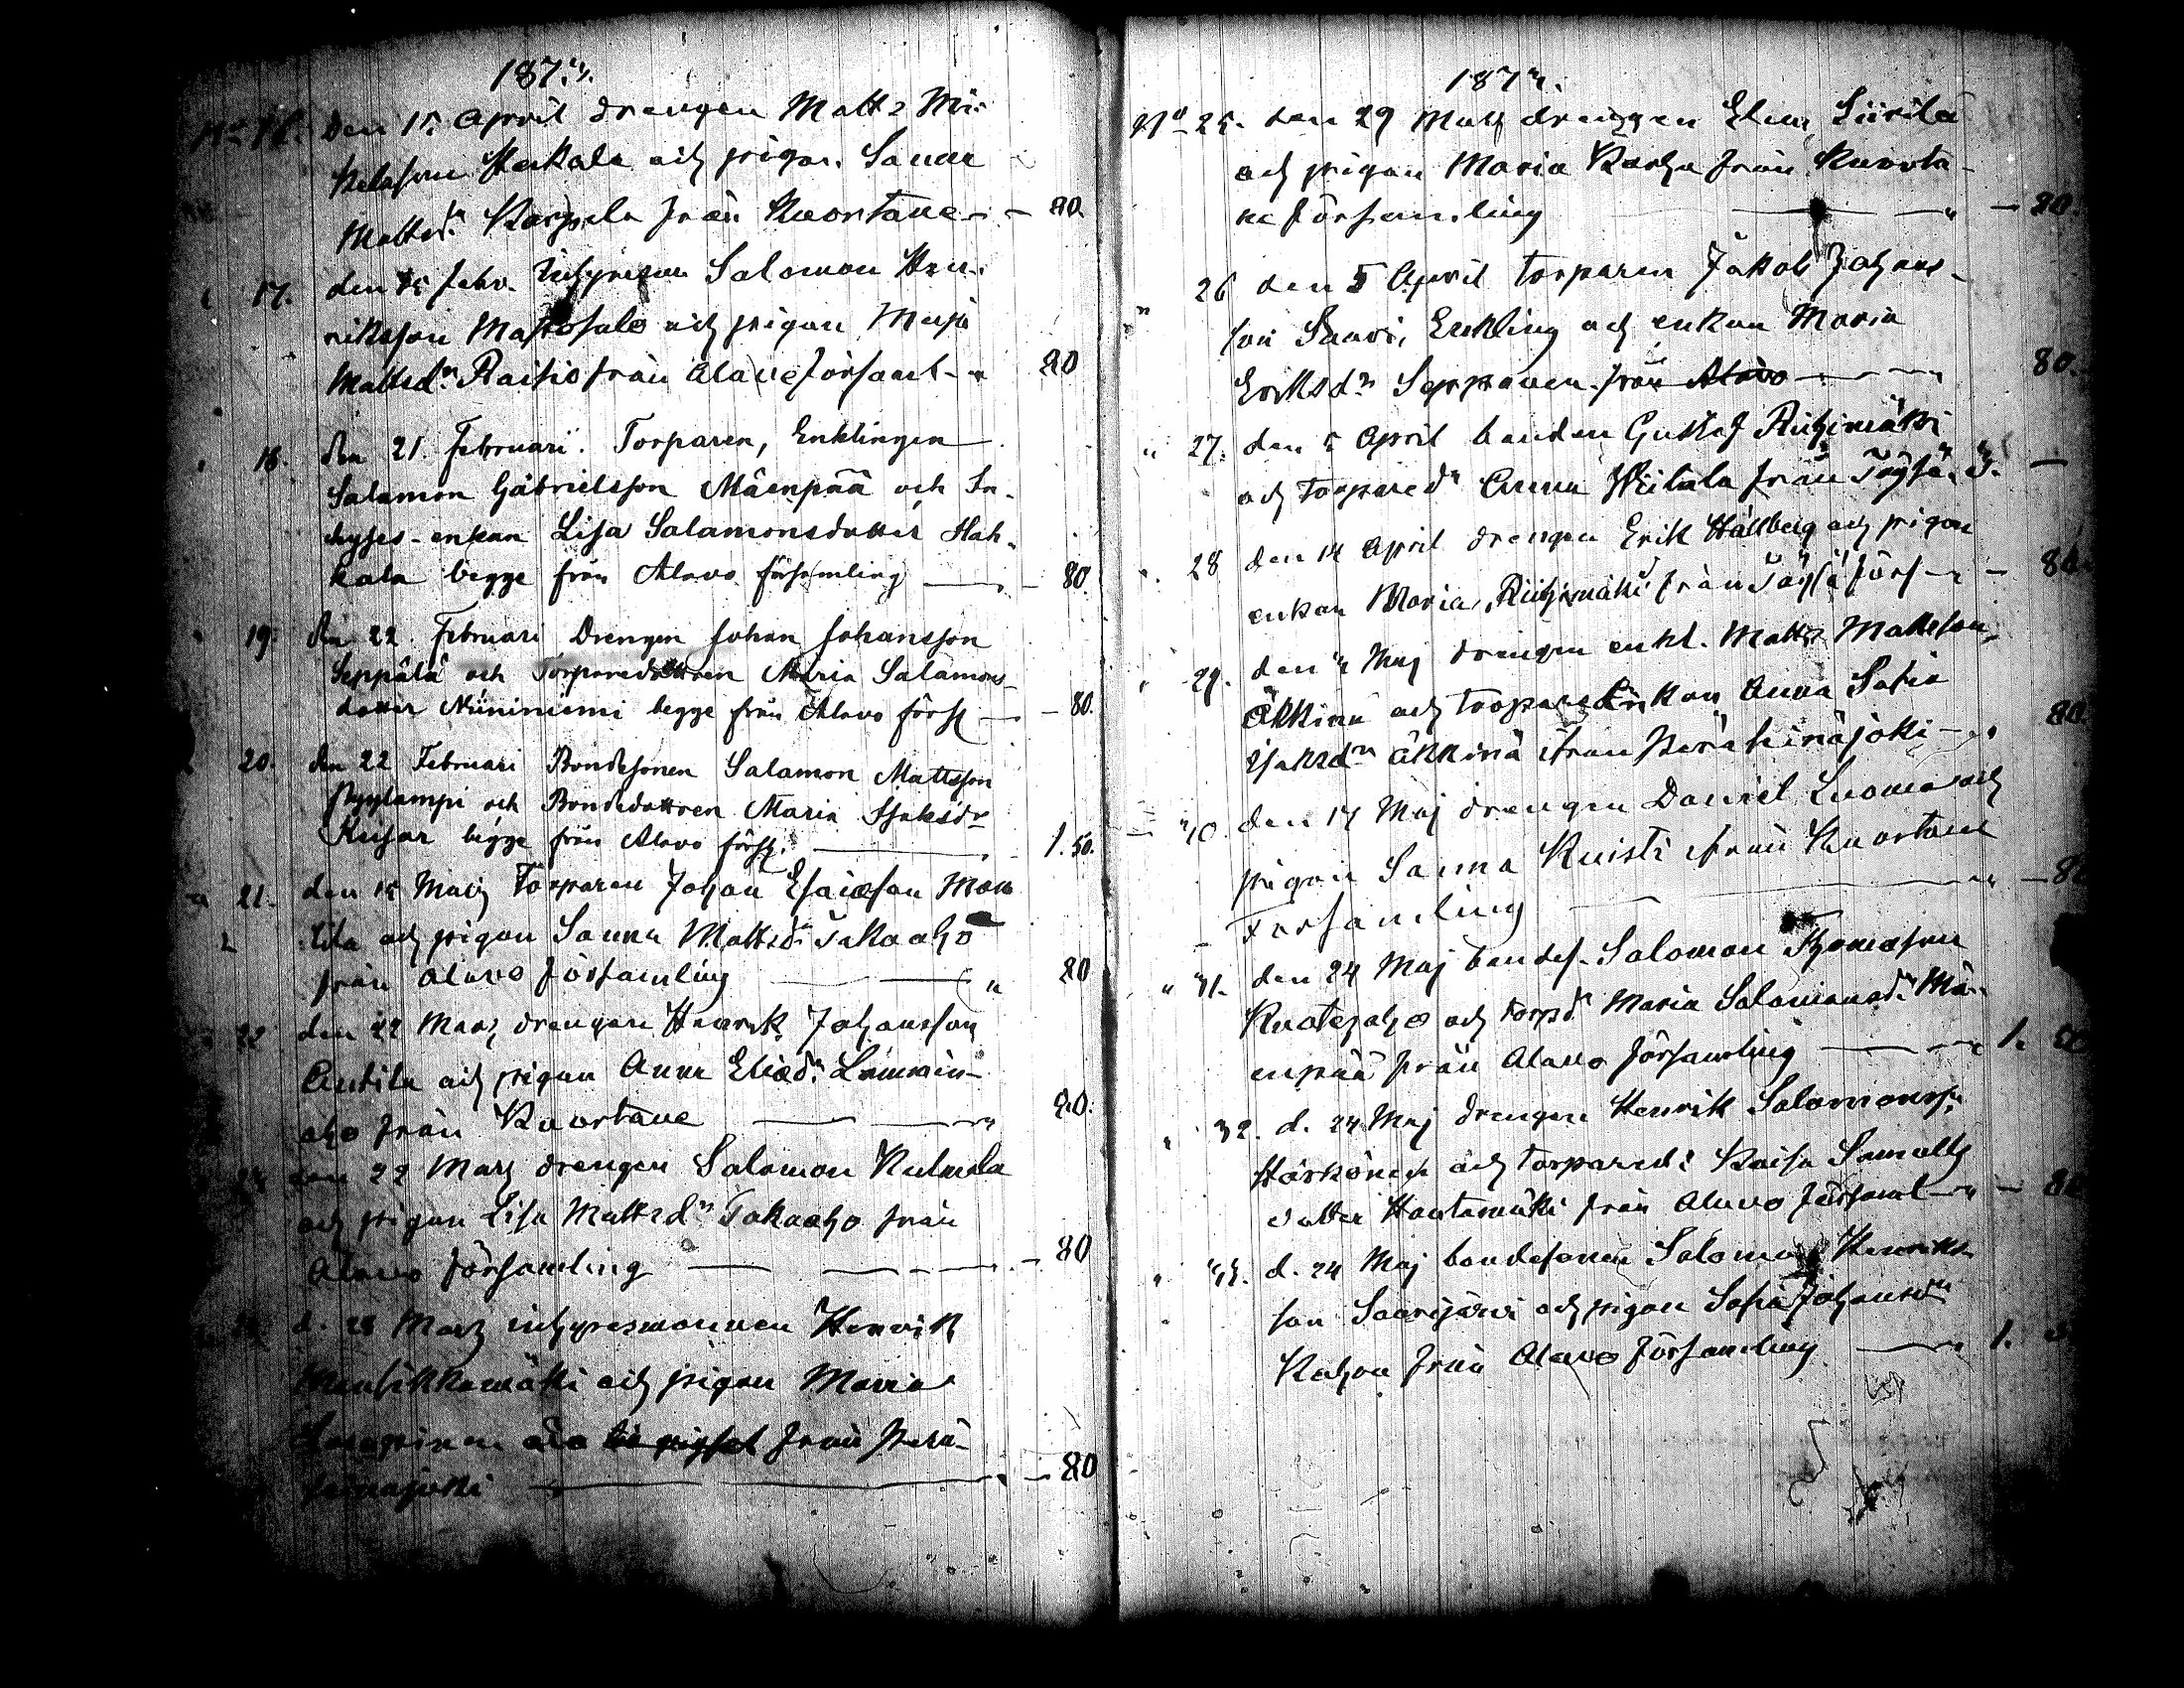 187
No 16. Den 15 April drengen Matts Mi-
kelsson Keskala och pigan Sanna
Mattsdr Karpela från Kuortane - 80.
17. den 15 Febr. Inhysesm Salomon Hen-
riksson Mastosalo och pigan Maja
Mattsdr Raisio från Alavo församl - " 80
18. den 21. Februari. Torparen, Enklingen
Salamon Gabrielsson Mäenpää och In-
hyses-enkan Lisa Salamonsdotter Hah-
kala begge från Alavo församling - 80.
19. den 22. Februari Drengen Johan Johansson
Seppälä och Torparedottren Maria Salamons-
dotter Niininiemi begge från Alavo förs - 80.
20. den 22 Februari Bondesonen Salamon Mattsson
Pyylampi och Bondedottren Maria Isaksdr
Kuisar begge från Alavo förs. 1.50.
21. den 15 Mars Torparen Johan Esaiasson Man
tila och pigan Sanna Mattsdr Takaaho
från Alavo församling " 80
22 den 22 Mars drengen Henrik Johansson
Antila och pigan Anna Eliasdr Lamminaho
aho från Kuortane " 80.
den 22 Mars drengen Salomon Kulmala
och pigan Lisa Mattsdr Takaaho från
Alavo församling - 80
d. 28 Mars inhysesmannen Henrik
Mansikkamäki och pigan Maria
från Perä-
seinäjoki - 80
187
No 25. den 29 Mars drengen Elias Liirila
och pigan Maria Karhu från Kuorta-
ne församling " - 80.
" 26 den 5 April torparen Jakob Johans-
son Saari, Enkling och enkan Maria
Eriksdr Seppänen från Alavo 80.
" 27. den 5 April bonden Gustaf Ruhimäki
och torparedr Anna Wiitala från Töysä
28 den 14 April drengen Erik Hällberg och pigan
enkan Maria Riihimäki från Töysä förs - " - 80
" 29. den Maj drengen enkl. Matts Mattsson
Äkkinä och torpareenkan Anna Sofia
Isaksdr Äkkinä från Peräseinäjoki - " 80.
30. den 17 Maj drengen Daniel Luoma och
pigan Sanna Kuisti från Kuortane
Församling " - 80
" 31. den 24 Maj bondes. Salomon Thomasson
och torpdr Maria Salomonsdr Mä-
enpää från Alavo församling " 1. 50
" 32. d. 24 Maj drengen Henrik Salomonss
Härkönen och torparedr Kaisa Samuels
dotter Hautamäki från Alavo församl - " - 80
" 33. d. 24 Maj bondesonen Salomon Henriks-
son Saarijärvi och pigan Sofia Johansdr
från Alavo församling " 1.